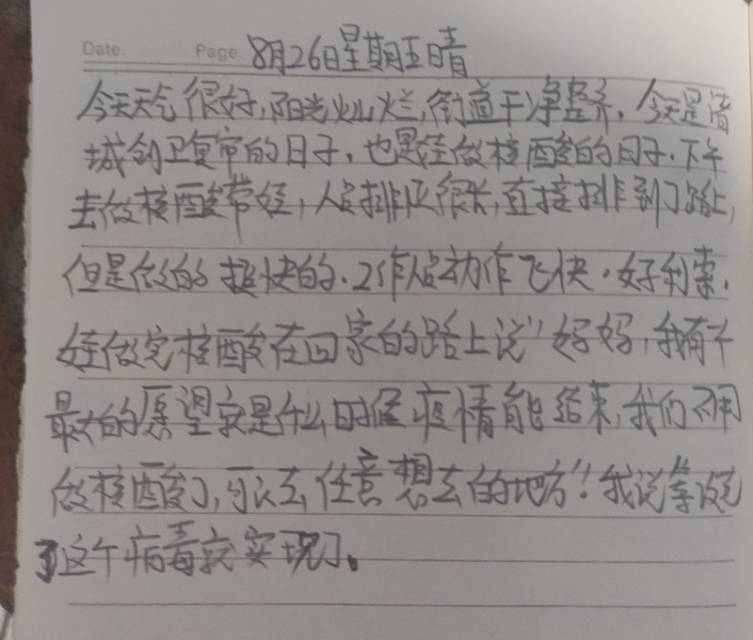 Date. Page. 8月26日星期五晴
今天天气很好,阳光灿烂,街道干净整齐,今天是清
城创卫复审的日子,也是娃做核酸的日子.下午
去做核酸带娃,人员排队很长,直接排到了路上,
但是做的挺快的.工作人员动作飞快.好利索.
娃做完核酸在回家的路上说"妈妈,我有个
最大的愿望就是什么时候疫情能结束,我们不用
做核酸了,可以去任意想去的地方"!我说等
了这个病毒就实现了。